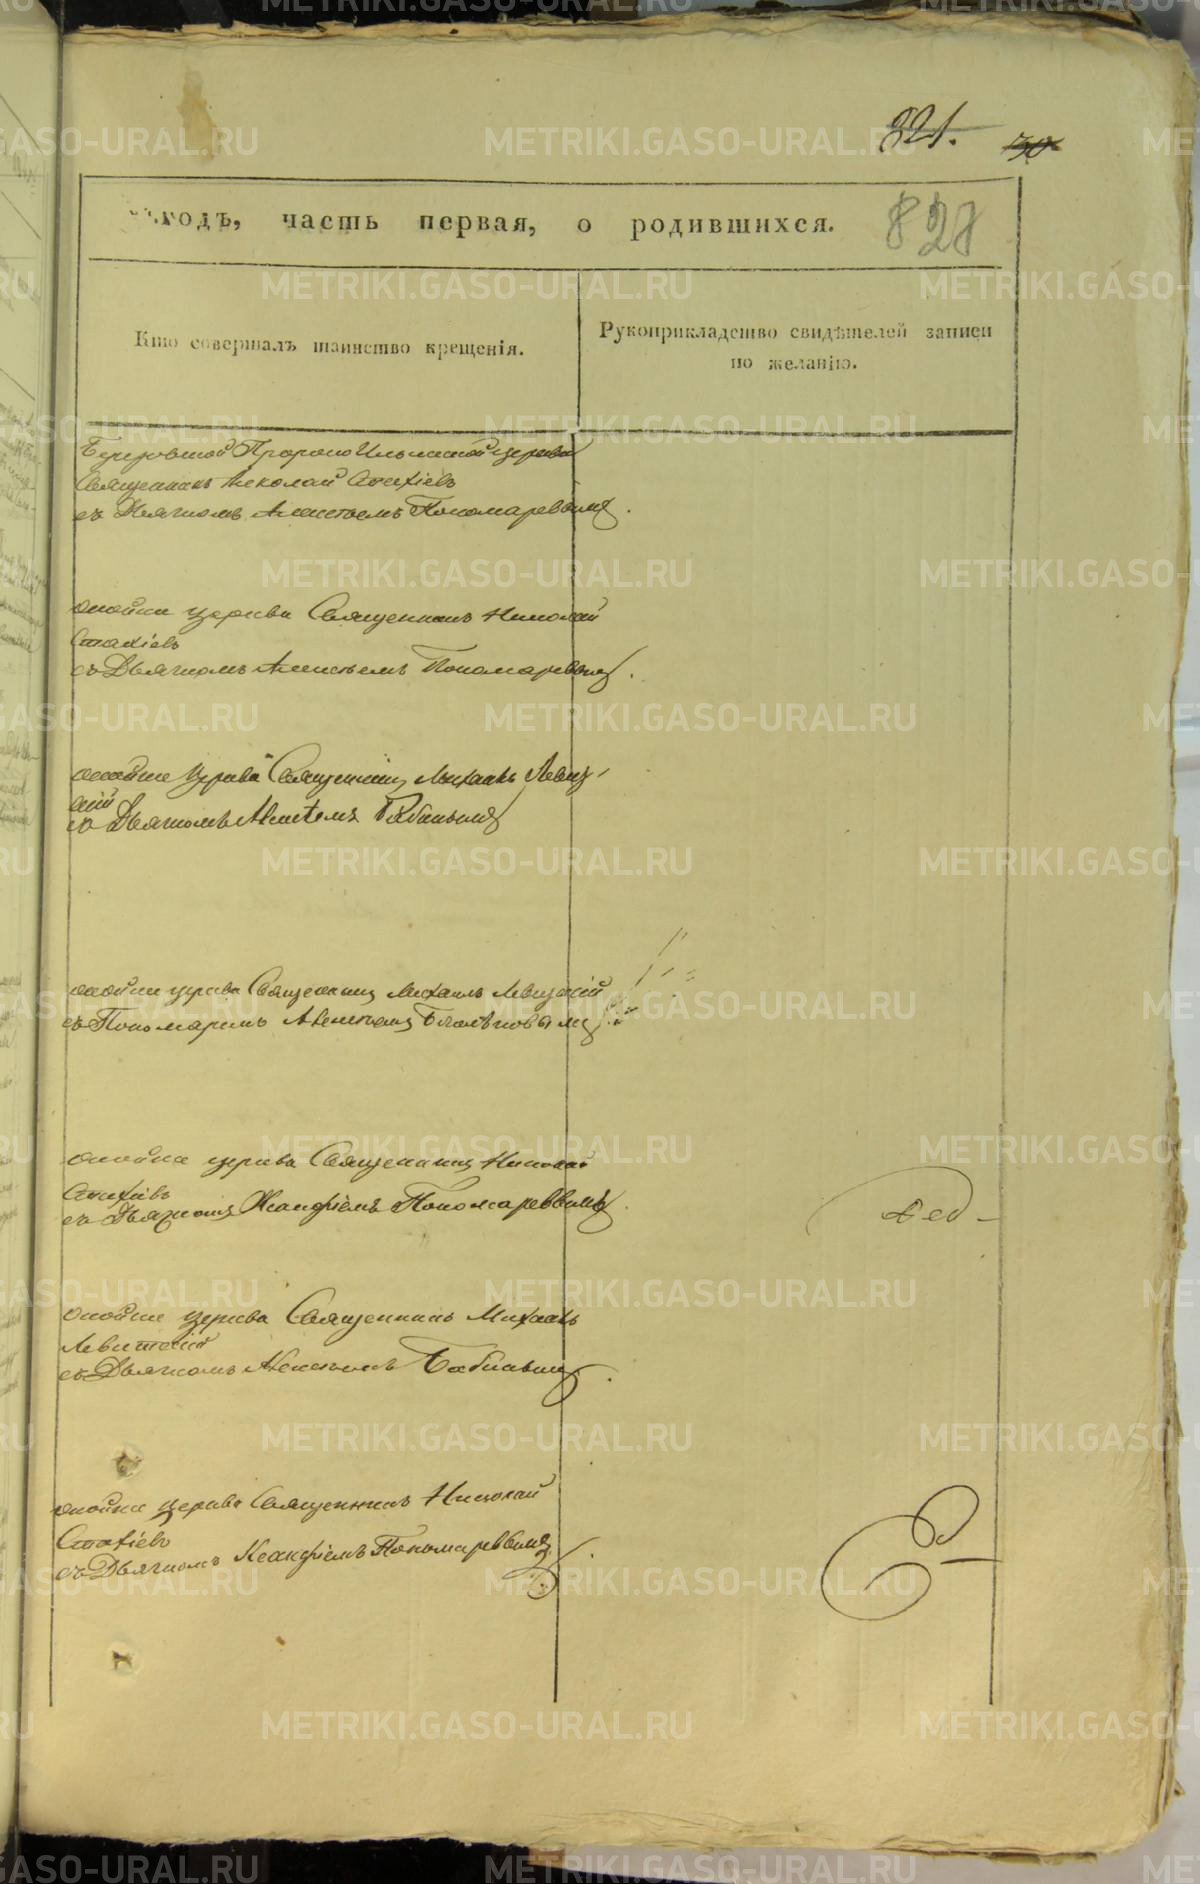 321.
30
годъ, часть первая, о родившихся.
828
Кто совершалъ таинство крещенія.
Рукоприкладство свидѣтелей записи
по желанію.
Пророко Ильинской церкви
Священникъ Николай Стахіевъ
съ Дьячкомъ Алексѣемъ Пономаревымъ.
оной же церкви Священникъ Николай
Стахіевъ
съ Дьячкомъ Алексѣемъ Пономаревымъ.
оной же церкви Священникъ Михаилъ Левиц-
кій
съ Дьячкомъ Бабинымъ
оной же церкви Священникъ Михаилъ Левицкій
съ Пономаремъ
оной же церкви Священникъ Николай
Стахіевъ
съ Дьячкомъ Ксанфіемъ Пономаревымъ.
оной же церкви Священникъ Михаилъ
Левитскій
съ Дьячкомъ Бабинымъ.
оной же церкви Священникъ Николай
Стахіевъ
съ Дьячкомъ Ксанфіемъ Пономаревымъ.
METRIKI.GASO-URAL.RU